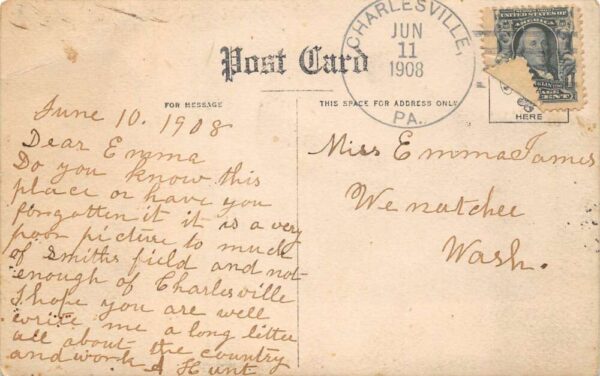 CHARLESVILLE,
JUN
11
1908
PA.
UNITED STATES OF
AMERICA
Post Card
FOR MESSAGE
THIS SPACE FOR ADDRESS ONLY
HERE
June 10. 1908
Dear Emma
Do you know this
place or have you
forgotten it it is a very
poor picture to much
of Smiths field and not
enough of Charlesville
I hope you are well
write me a long letter
all about the country
and work
Hunt
Miss Emma James
Wenatchee
Wash.